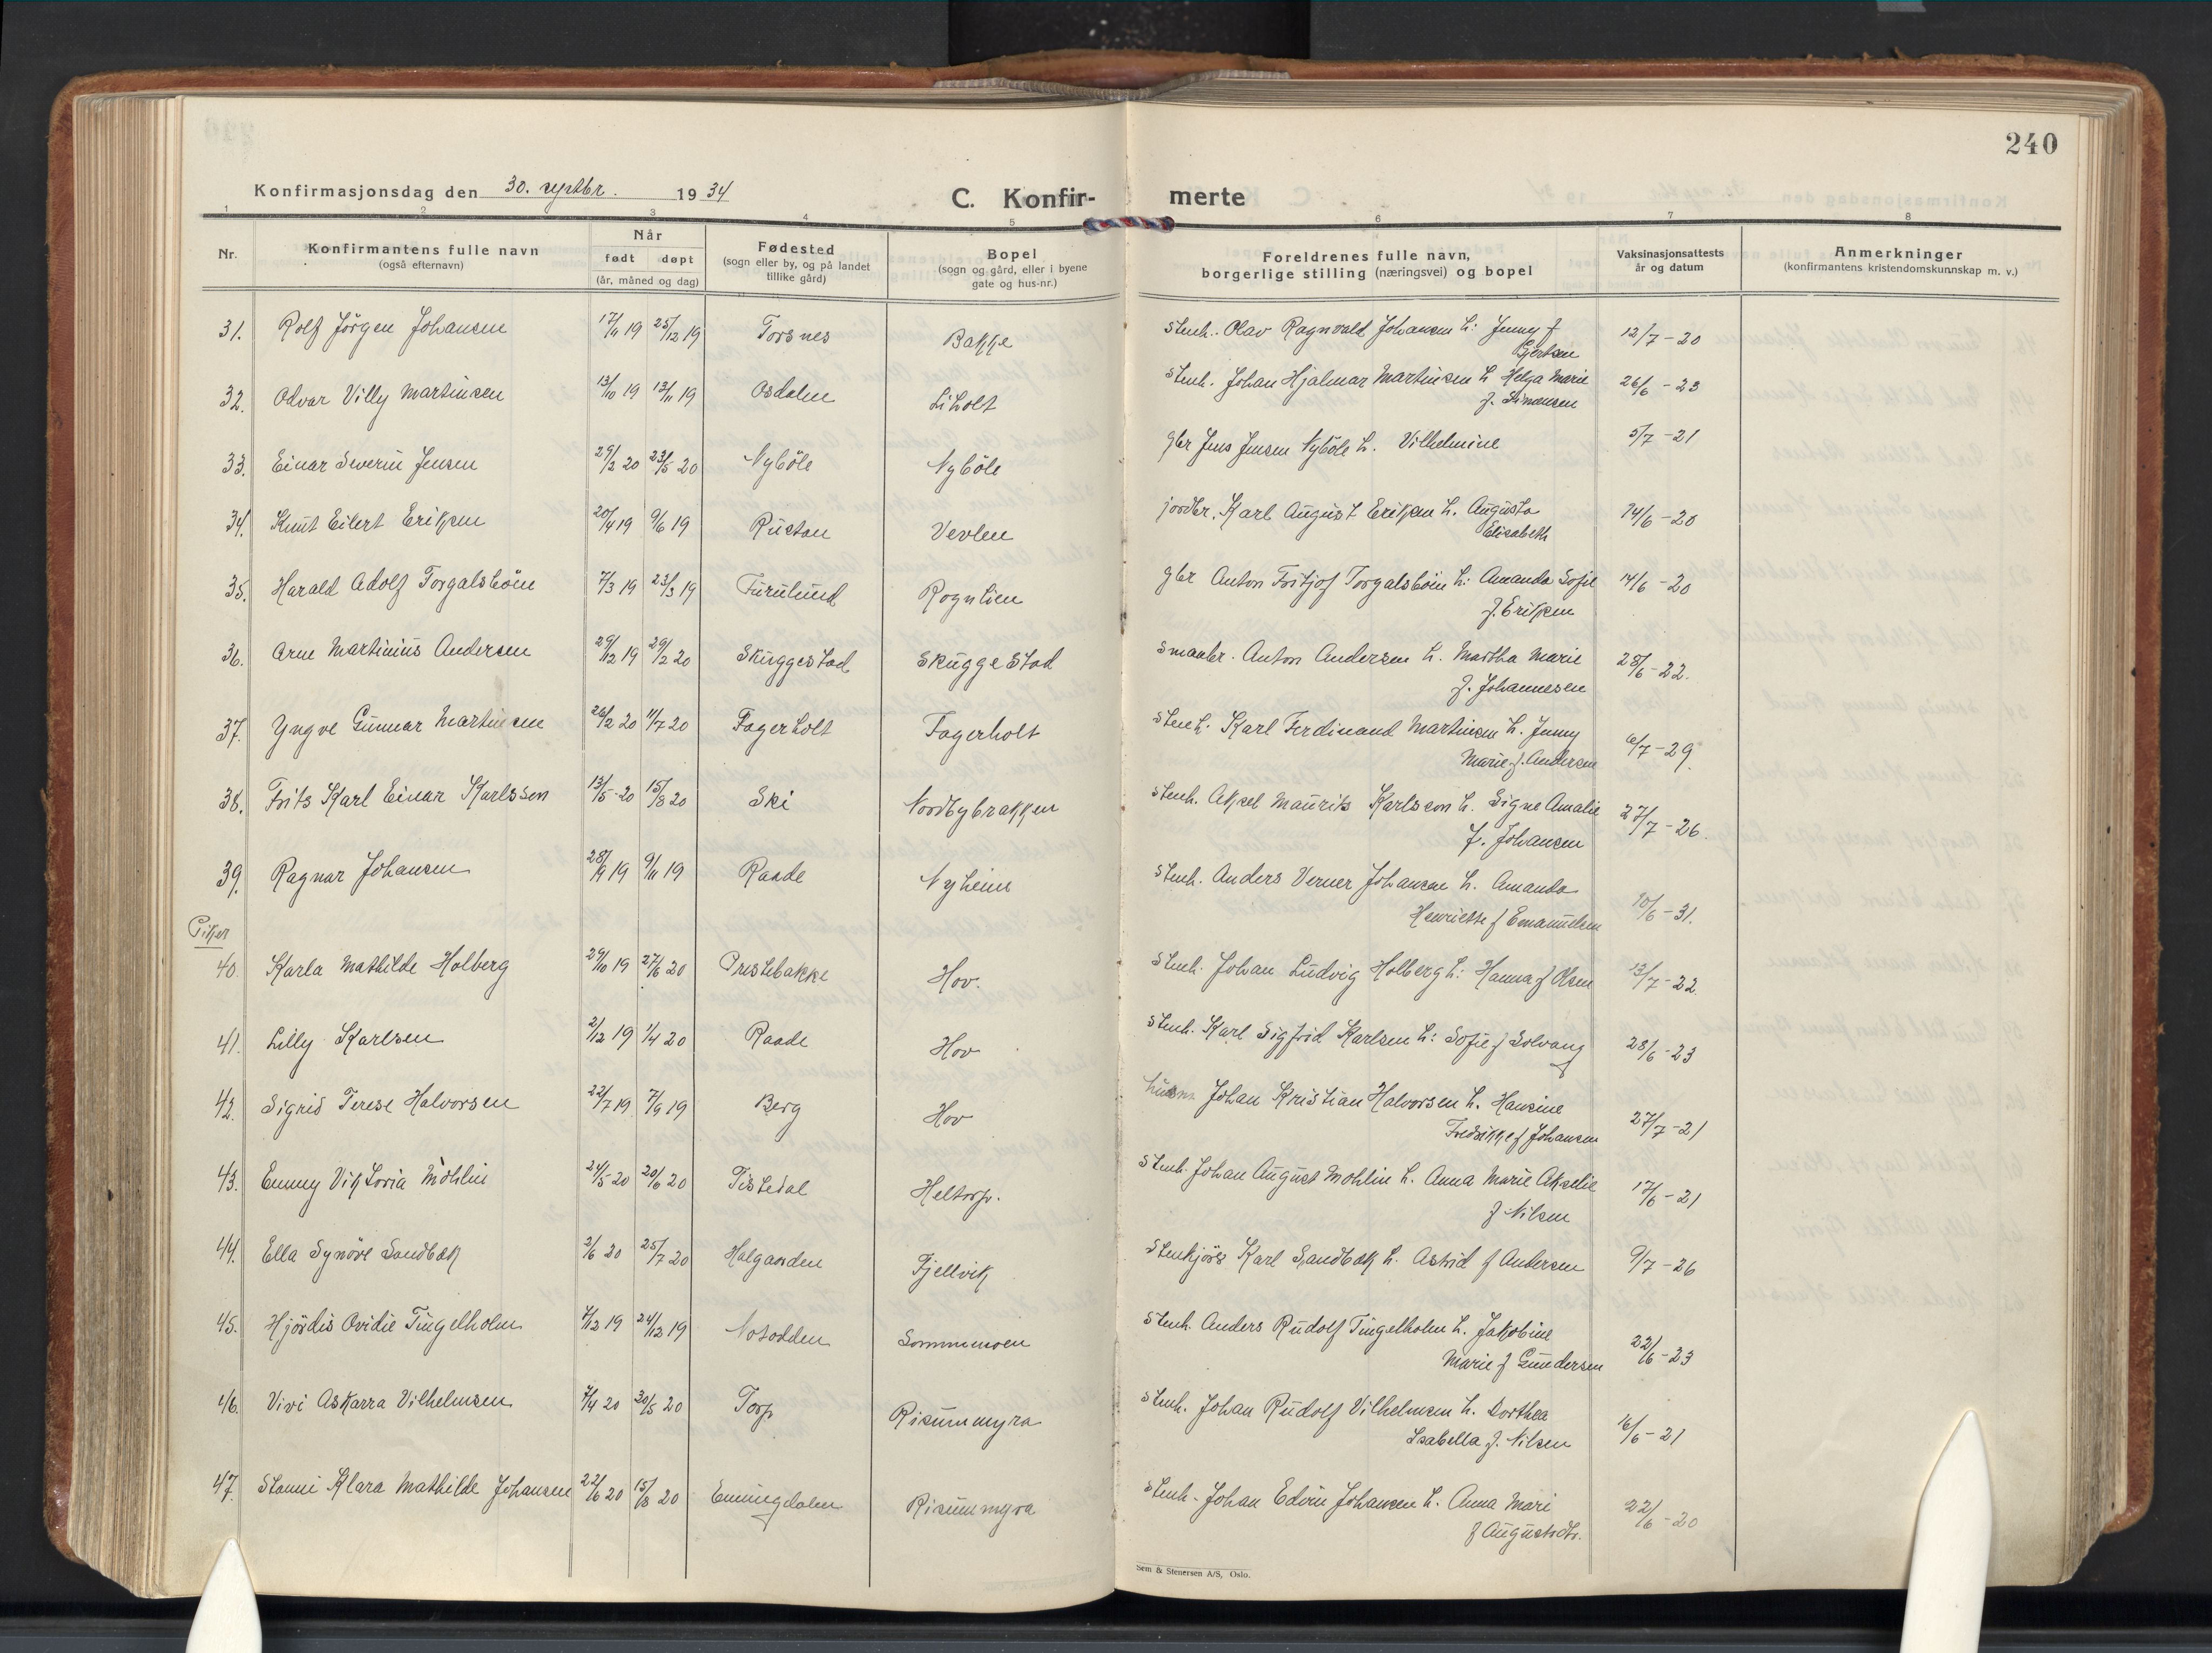 240
Konfirmasjonsdag den 30. septbr. 1934
C. Konfir- merte
1 2 3 4 5 6 7 8
Nr.
Konfirmantens fulle navn
(også efternavn)
Når
født døpt
(år, måned og dag)
Fødested
(sogn eller by, og på landet
tillike gård)
Bopel
(sogn og gård, eller i byene
gate og hus-nr.)
Foreldrenes fulle navn,
borgerlige stilling (næringsvei) og bopel
Vaksinasjonsattests
år og datum
Anmerkninger
(konfirmantens kristendomskunnskap m. v.)
31. Rolf Jörgen Johansen 17/11 19 25/12 19 Torsnes Bakke Stenh. Olav Ragnvald Johansen h: Jenny f 12/7-20
Gjertsen
32. Odvar Villy Martinsen 13/10 19 13/11 19 Osdalen Liholt Stenh. Johan Hjalmar Martinsen h Helga Marie 26/6-23
f. Simensen
33. Einar Severin Jensen 29/2 20 23/5 20 Nyböle Nyböle gbr Jens Jensen Nyböle h. Vilhelmine 5/7-21
34. Knut Eilert Eriksen 20/4 19 9/6 19 Rustan Vevlen jordbr. Karl August Eriksen h. Augusta 14/6-20
Elisabeth
35. Harald Adolf Torgalsböen 7/3 19 23/3 19 Furulund Rognlien gbr Anton Fritjof Torgalsböen h: Amanda Sofie 14/6-20
f. Eriksen
36. Arne Martinius Andersen 29/12 19 29/2 20 Skuggestad Skuggestad Småbr. Anton Andersen h. Martha Marie 28/6-22.
f. Johannesen
37. Yngve Gunnar Martinsen 26/2 20 11/7 20 Fagerholt Fagerholt Stenh. Karl Ferdinand Martinsen h. Jenny 6/7-29.
Marie f. Andersen
38. Frits Karl Einar Karlsson 13/5-20 15/8 20 Ski Nordbybrakken Stenh. Aksel Maurits Karlsson h. Signe Amalie 27/7-26.
f. Johansen
39. Ragnar Johansen 28/9 19 9/11 19 Raade Nyheim Stenh. Anders Verner Johansen h. Amanda 10/6-31.
Henriette f Emanuelsen
Piker
40. Karla Mathilde Holberg 29/10 19 27/6 20 Prestebakke Hov. Stenh. Johan Ludvig Holberg h: Hanna f Olsen 13/7-22.
41. Lilly Karlsen 2/12 19 1/4 20 Raade Hov Stenh. Karl Sigfrid Karlsen h: Sofie f Solvang 28/6-23
42. Sigrid Terese Halvorsen 22/7 19. 7/9 19 Berg Hov husm Johan Kristian Halvorsen h. Hansine 27/7-21
Fredrikke f Johansen
43. Emmy Viktoria Möhlin 24/5 20 20/6 20 Tistedal Heltorp. Stenh. Johan August Mohlin h. Anna Marie Akselie 17/6-21
f Nilsen
44. Ella Synöve Sandbæk 2/6 20 25/7 20 Halganden Fjellvik Stenkjörs Karl Sandbæk h. Astrid f Andersen 9/7-26
45. Hjördis Ovidie Tingelholm 7/12 19 24/12 19 Notodden Sommermoen Stenh. Anders Rudolf Tingelholm h. Jakobine 22/6-23
Marie f Gundersen
46. Vivi Askarra Vilhelmsen 7/4 20 30/5 20 Torp Risummyra Stenh. Johan Rudolf Vilhelmsen h. Dorthea 16/6-21
Isabella f. Nilsen
47. Stanni Klara Mathilde Johansen 22/6 20 15/8 20 Enningdalen Risummyra Stenh. Johan Edvin Johansen h. Anna Mari 22/6-20
f Augustsdtr.
Sem & Stenersen A/S, Oslo.